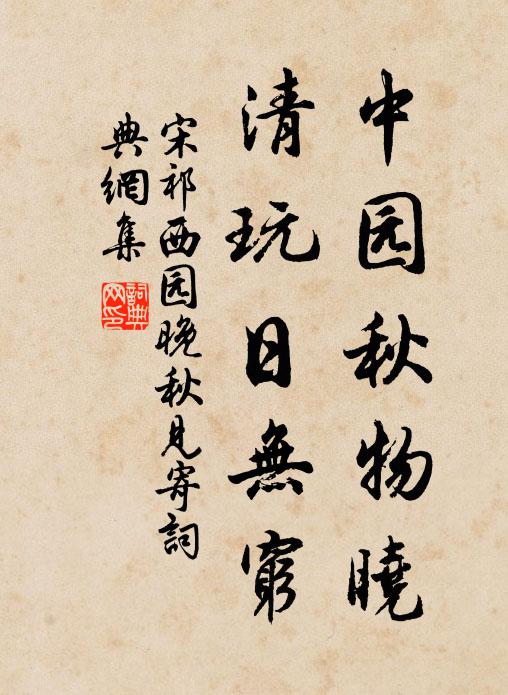 中园秋物曉
清玩日無窮
宋祁西园晚秋見寄詞
典網集
詞典
网印